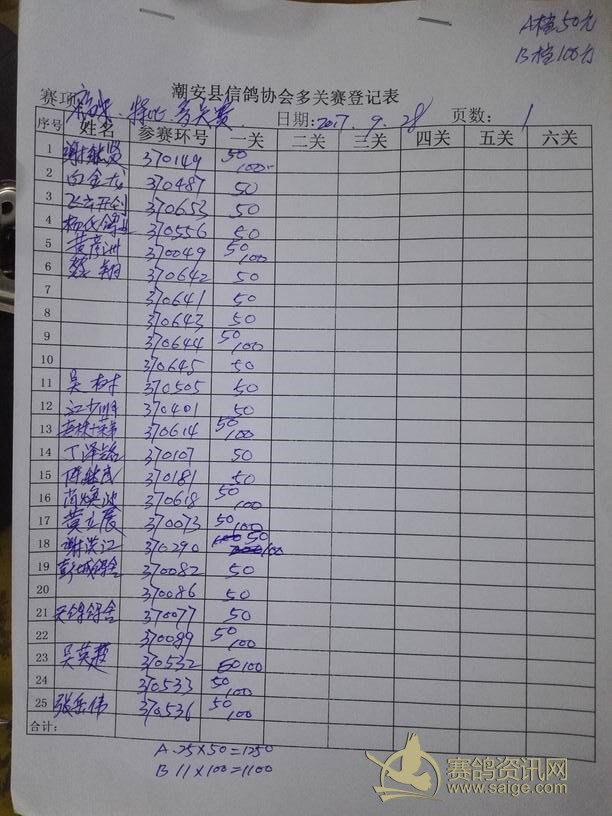 A档50元
B档100元
潮安县信鸽协会多关赛登记表
赛项: 特比 多关赛 日期: 2017.9.28 页数: 1
序号 姓名 参赛环号 一关 二关 三关 四关 五关 六关
1 谢继贤 370149 50 100
2 白金龙 370487 50
3 370653 50
4 370556 50
5 黄彦洲 370049 50 100
6 370642 50
7 370641 50
8 370643 50
9 370644 50 100
10 370645 50
11 吴树 370505 50
12 370401 50
13 370614 50 100
14 丁泽 370107 50
15 陈 370181 50
16 370618 50 100
17 黄立展 370073 50 100
18 谢洪江 370290 50 100
19 彭城鸽舍 370082 50
20 370086 50
21 天锦鸽舍 370077 50
22 370089 50 100
23 吴英 370532 50 100
24 370533 50 100
25 张岳伟 370536 50 100
合计:
A 25×50=1250
B 11×100=1100
赛鸽资讯网
www.saige.com